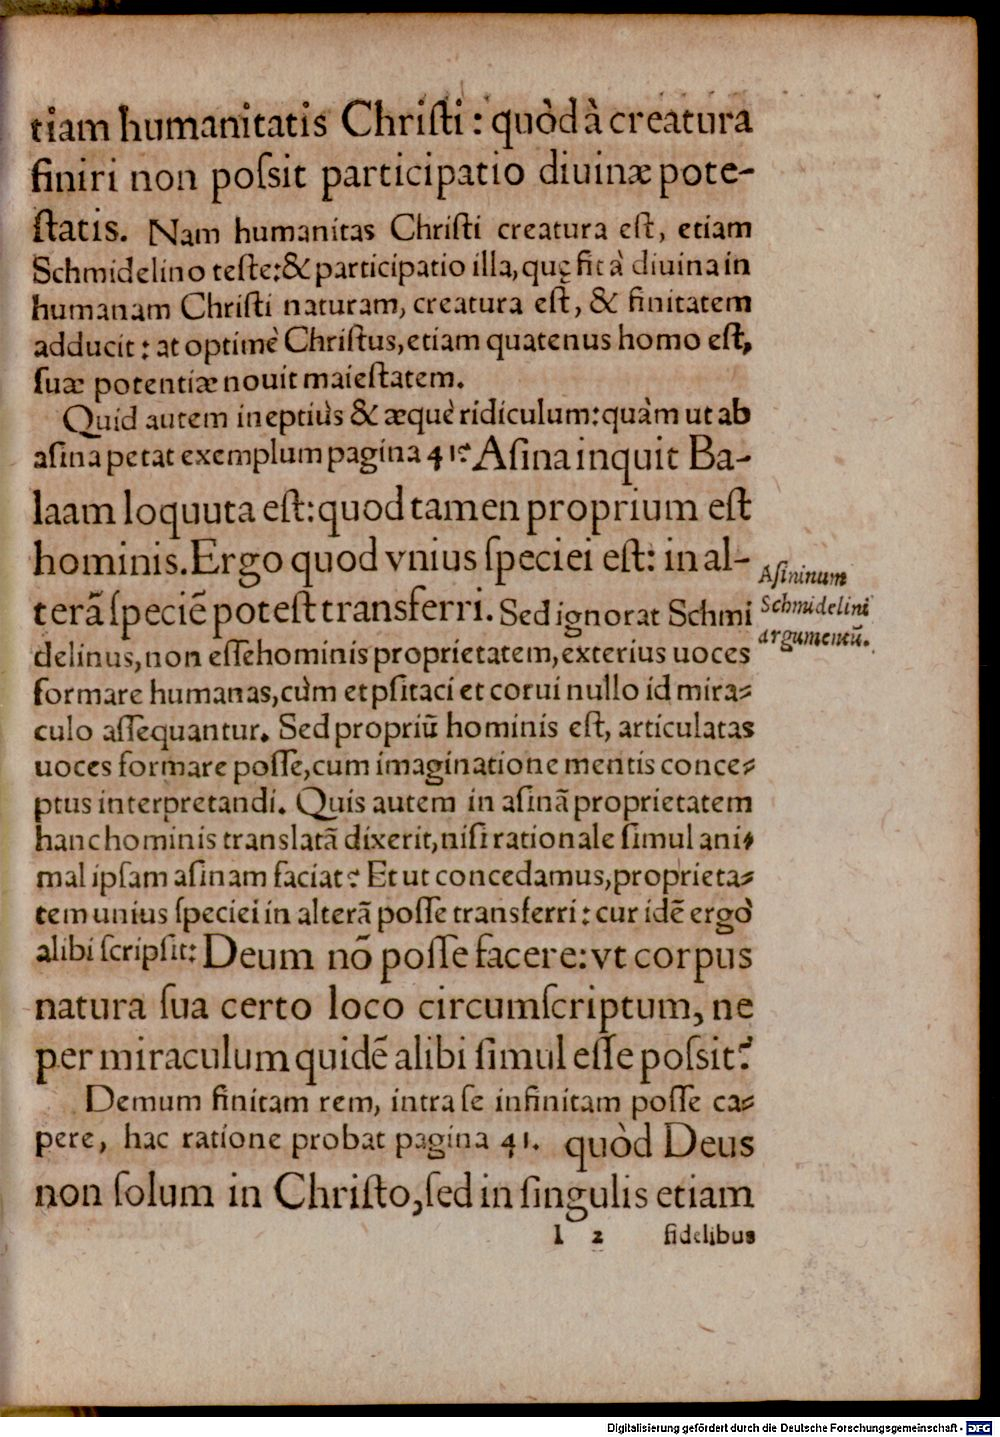 tiam humanitatis Chriſti : quòd à creatura
finiri non poſsit participatio diuinæ pote-
ſtatis. Nam humanitas Chriſti creatura eſt, etiam
Schmidelino teſte: & participatio illa, quę fit à diuina in
humanam Chriſti naturam, creatura eſt, & finitatem
adducit : at optimè Chriſtus, etiam quatenus homo eſt,
ſuæ potentiæ nouit maieſtatem.
Quid autem ineptiùs & æquè ridiculum: quàm ut ab
aſina petat exemplum pagina 41? Aſina inquit Ba-
laam loquuta eſt: quod tamen proprium eſt
hominis. Ergo quod vnius ſpeciei eſt: in al-
terã ſpeciẽ poteſt transferri. Sed ignorat Schmi
delinus, non eſſe hominis proprietatem, exterius uoces
formare humanas, cùm et pſitaci et corui nullo id mira-
culo aſſequantur. Sed propriũ hominis eſt, articulatas
uoces formare poſſe, cum imaginatione mentis conce-
ptus interpretandi. Quis autem in aſinã proprietatem
hanc hominis translatã dixerit, niſi rationale ſimul ani-
mal ipſam aſinam faciat? Et ut concedamus, proprieta-
tem unius ſpeciei in alterã poſſe transferri : cur idẽ ergò
alibi ſcripſit: Deum nõ poſſe facere: vt corpus
natura ſua certo loco circumſcriptum, ne
per miraculum quidẽ alibi ſimul eſſe poſsit?
Demum finitam rem, intra ſe infinitam poſſe ca-
pere, hac ratione probat pagina 41. quòd Deus
non ſolum in Chriſto, ſed in ſingulis etiam
l 2 fidelibus
Aſininum
Schmidelini
argumentũ.
Digitalisierung gefördert durch die Deutsche Forschungsgemeinschaft - DFG